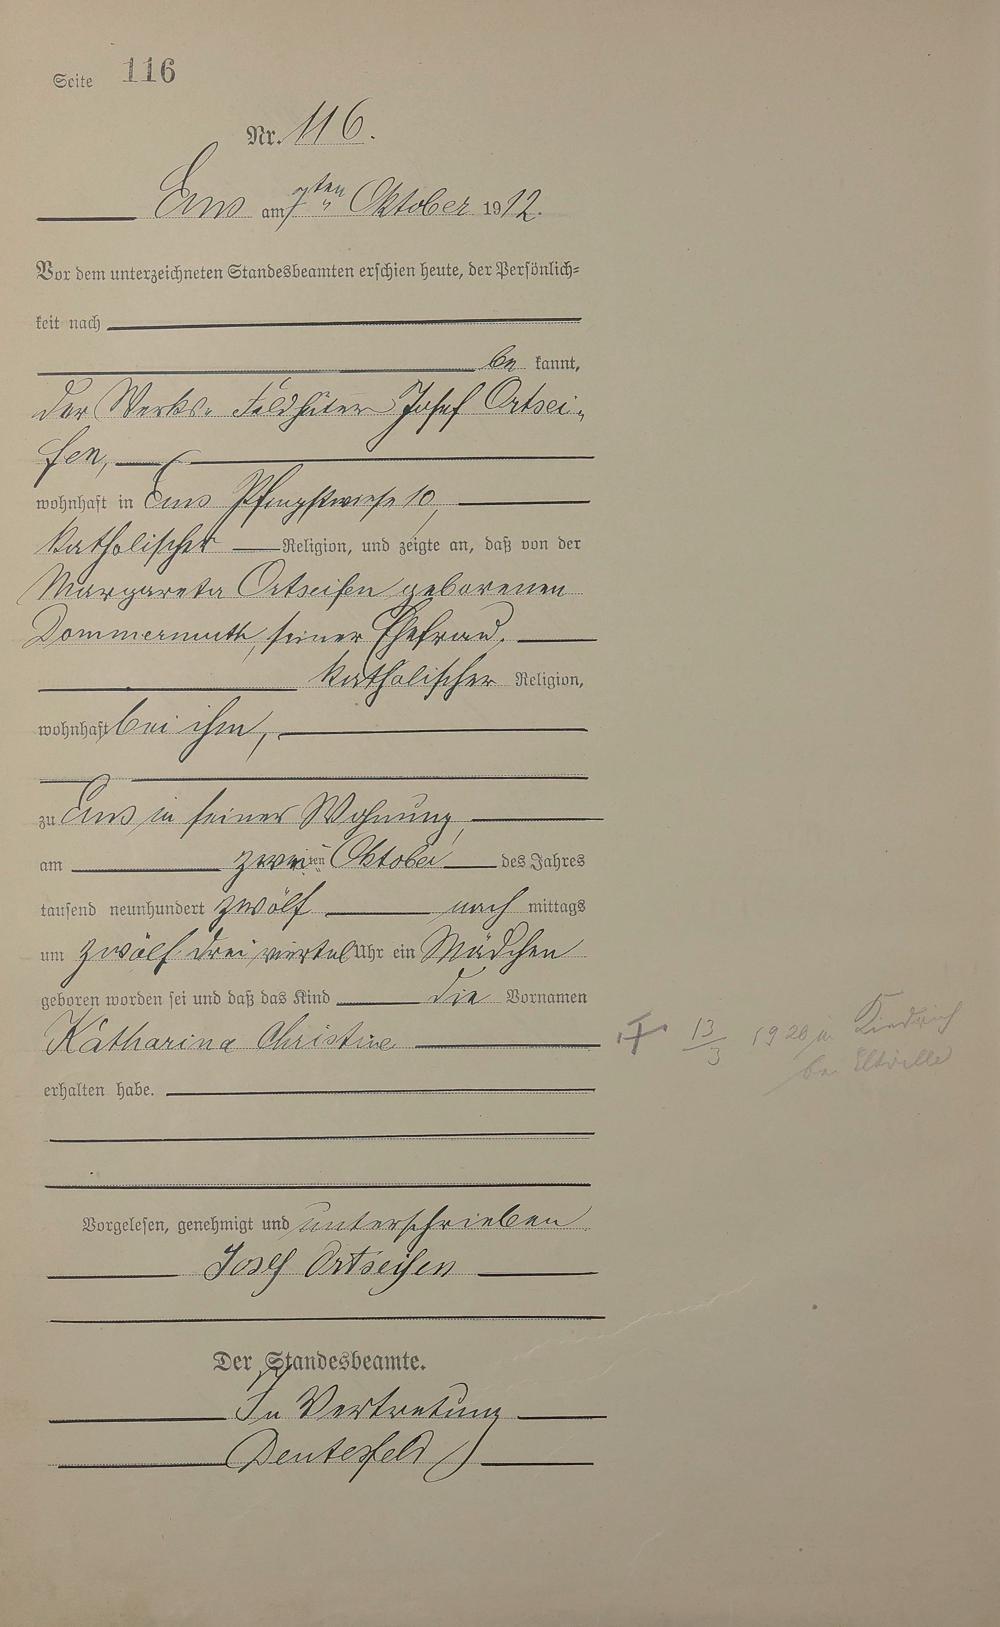 Seite 116
Nr. 116.
Ems am 7ten Oktober 1912.
Vor dem unterzeichneten Standesbeamten erschien heute, der Persönlich=
keit nach
be kannt,
der Werks- Feldhüter Josef Ortsei-
fen,
wohnhaft in Ems Pfingstwiese 10,
katholischer Religion, und zeigte an, daß von der
Margareta Ortseifen geborenen
Dommermuth, seiner Ehefrau,
katholischer Religion,
wohnhaft bei ihm,
zu Ems in seiner Wohnung,
am zweiten Oktober des Jahres
tausend neunhundert zwölf nach mittags
um zwölf drei viertel Uhr ein Mädchen
geboren worden sei und daß das Kind die Vornamen
Katharina Christine
erhalten habe.
13/3 1920 in Kiedrich
bei Eltville
Vorgelesen, genehmigt und unterschrieben
Josef Ortseifen
Der Standesbeamte.
In Vertretung